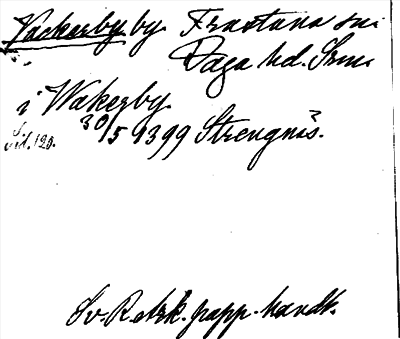 Vackerby by Frustuna sn.
Daga hd. Srm.
i Wakerby
30/5 1399 Strengnäs.
Sv. R. Ark. papp. handl.